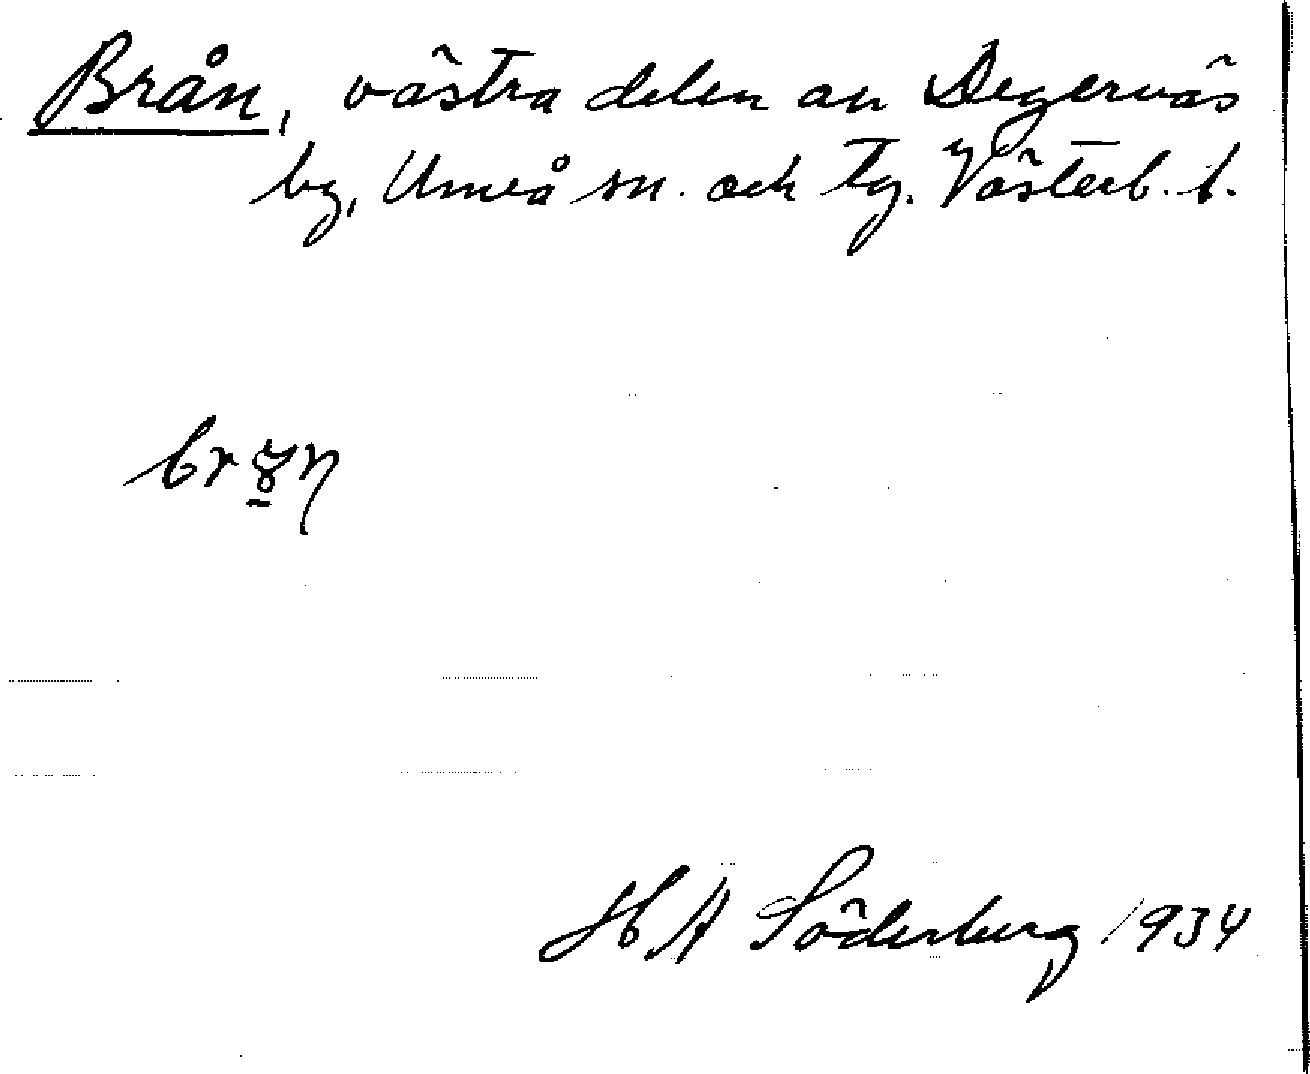 Brån, västra delen av Degernäs
by, Umeå sn. och tg. Västerb. l.
H A Söderberg 1934